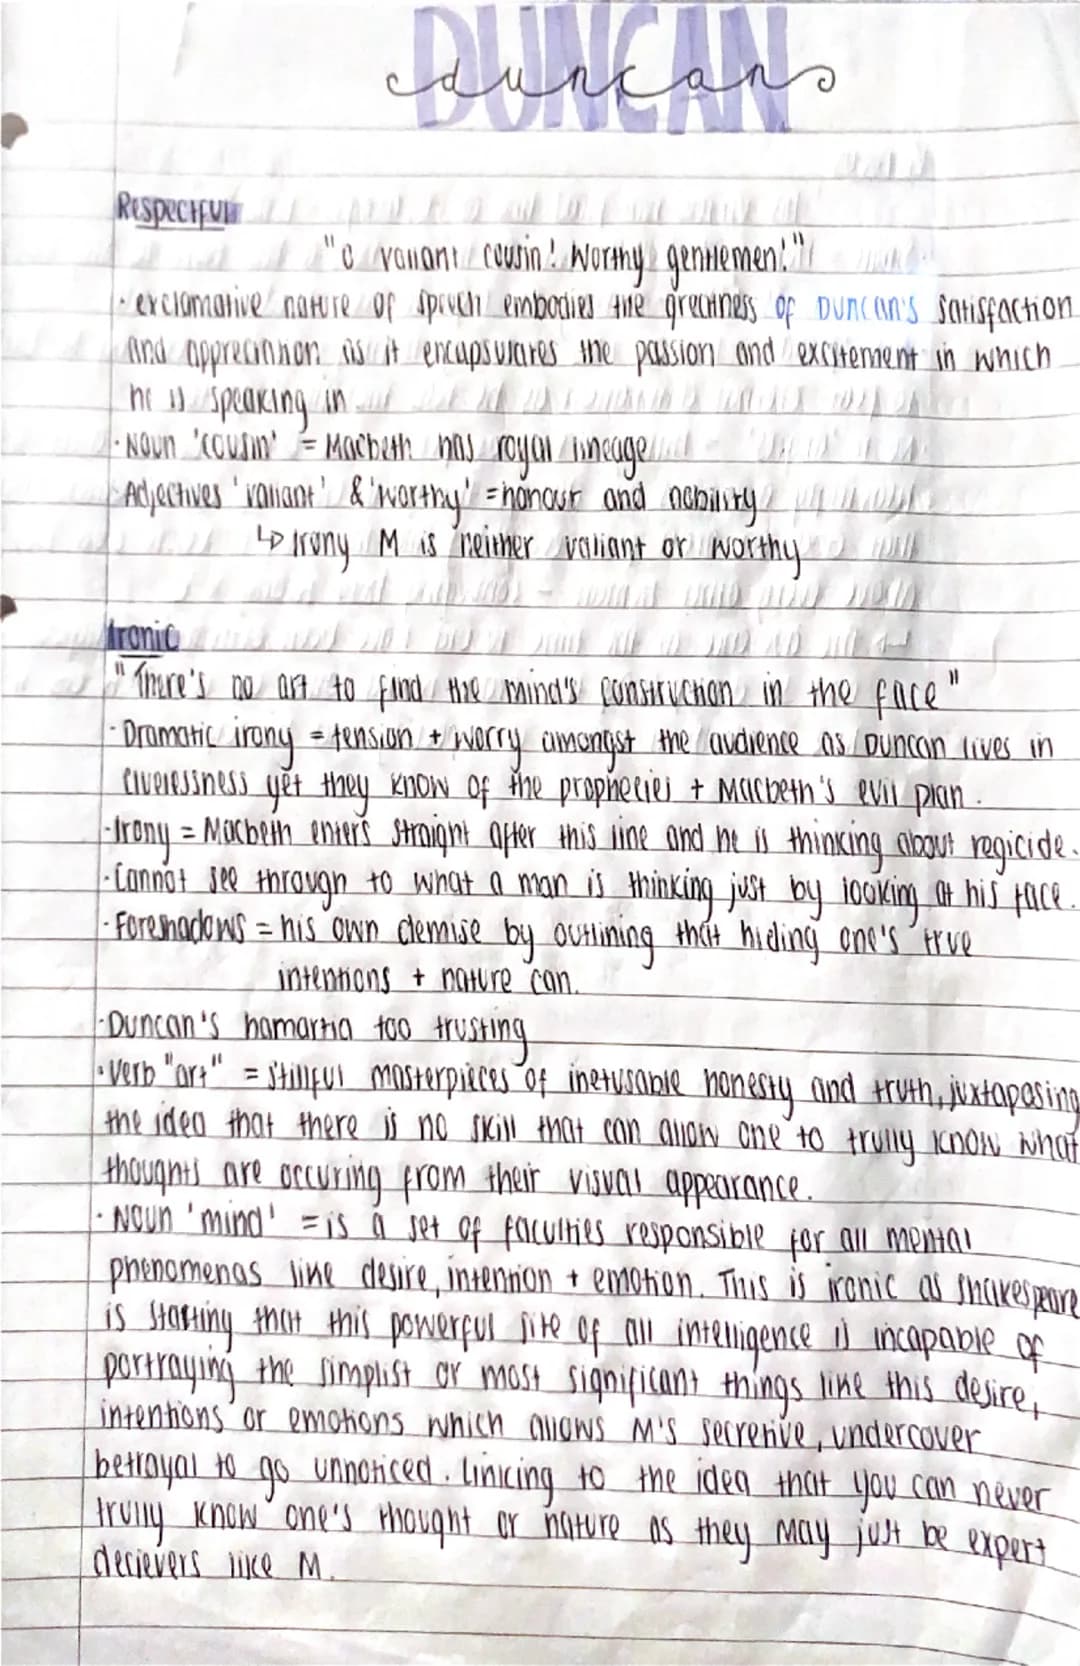 DUNCAN
duncan
Respectful
"O valiant cousin! Worthy gentlemen!"
· exclamative nature of speech embodies the greatness of Duncan's satisfaction
and appreciation as it encapsulates the passion and excitement in which
he is speaking in
· Noun 'cousin' = Macbeth has royal lineage
· Adjectives 'valiant' & 'worthy' = honour and nobility
↳ Irony M is neither valiant or worthy
Ironic
"There's no art to find the mind's construction in the face"
· Dramatic irony = tension + worry amongst the audience as Duncan lives in
yet they know of the prophecies + Macbeth's evil plan.
· Irony = Macbeth enters straight after this line and he is thinking about regicide.
· Cannot see through to what a man is thinking just by looking at his face.
· Foreshadows = his own demise by outlining that hiding one's true
intentions + nature can.
· Duncan's hamartia too trusting
· Verb "art" = masterpieces of honesty and truth, juxtaposing
the idea that there is no skill that can allow one to trully know what
thoughts are occuring from their visual appearance.
· Noun 'mind' = is a set of faculties responsible for all mental
phenomenas like desire, intention + emotion. This is ironic as Shakespeare
is starting that this powerful site of all intelligence is incapable of
portraying the simplist or most significant things like this desire,
intentions or emotions which allows M's secretive, undercover
betrayal to go unnoticed. Linking to the idea that you can never
trully know one's thought or nature as they may just be expert
decievers like M.